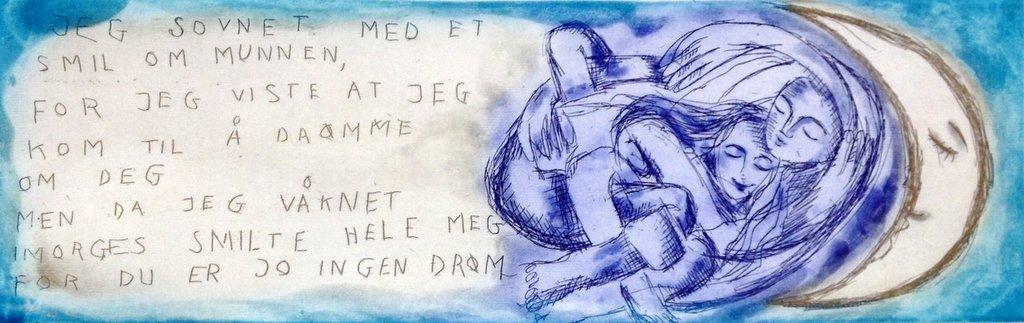 JEG SOVNET MED ET
SMIL OM MUNNEN,
FOR JEG VISTE AT JEG
KOM TIL Å DRØMME
OM DEG
MEN DA JEG VÅKNET
IMORGES SMILTE HELE MEG
FOR DU ER JO INGEN DRØM